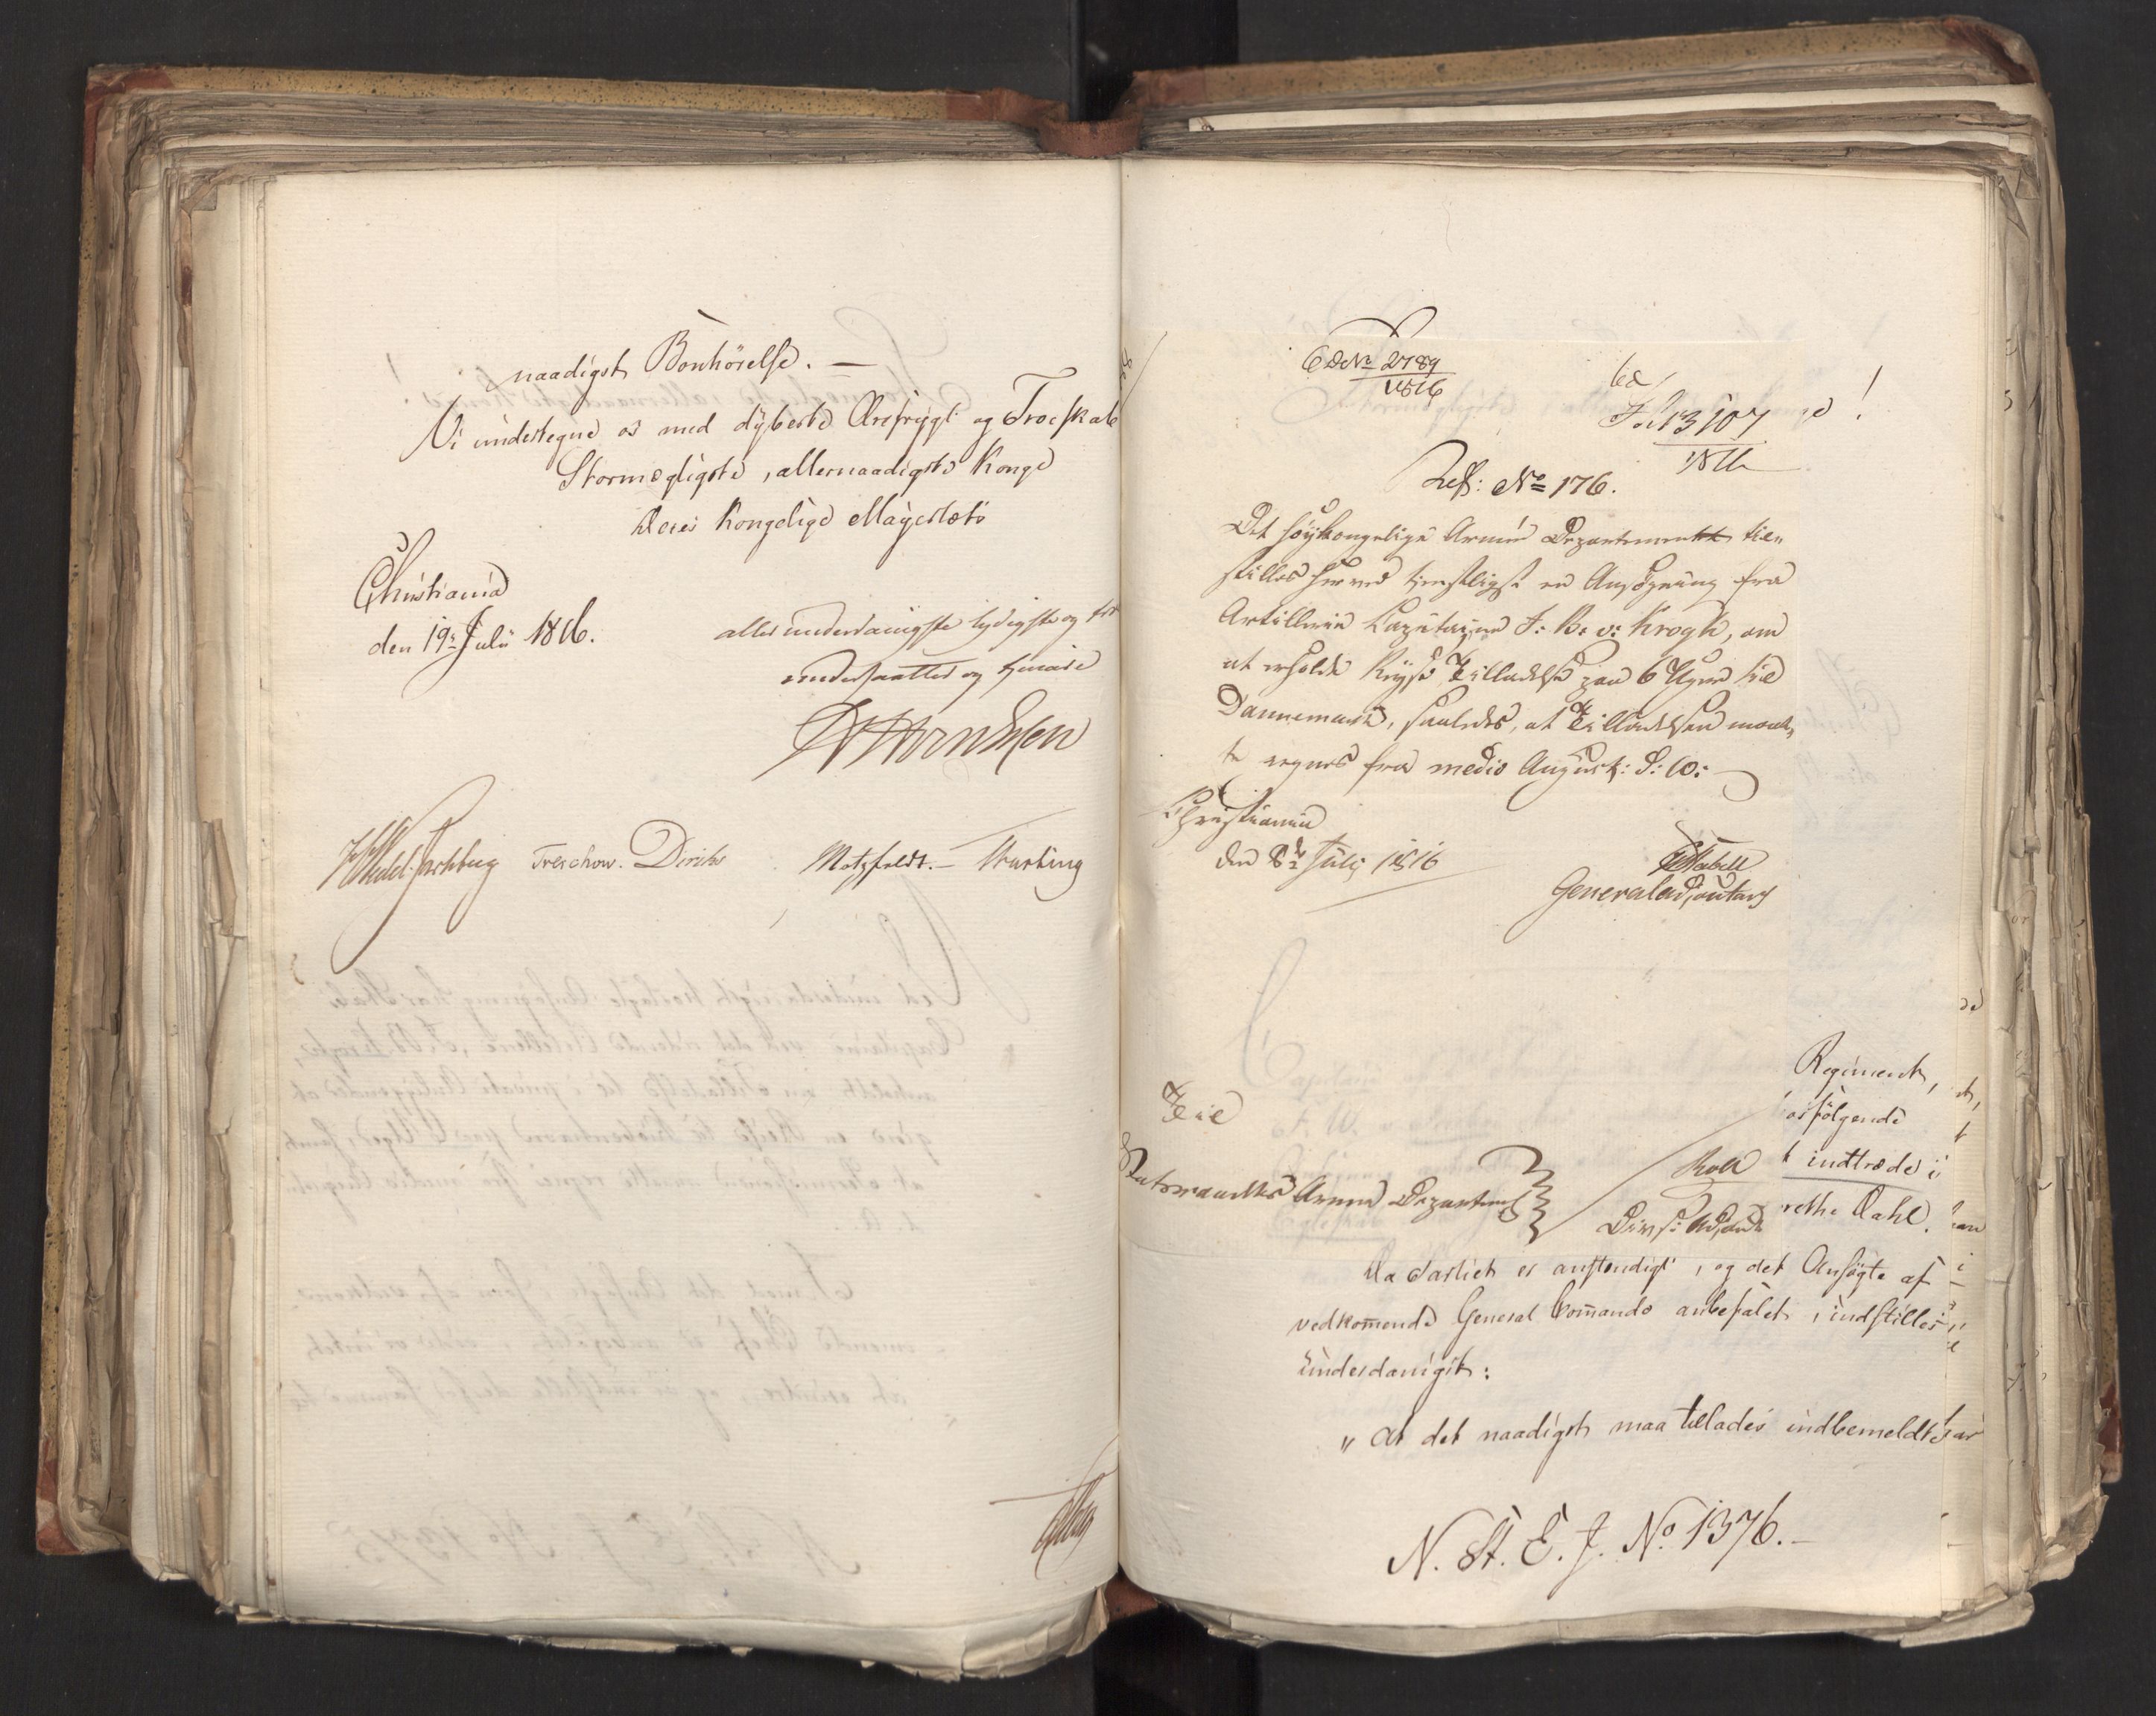 naadigst Bønhörelse. —
Vi undertegne os med dybeste Ærefrygt og Troeskab
Stormægtigste, allernaadigste Konge
Deres Kongelige Mayestæts
Christiania
den 19de Julii 1816.
allerunderdanigste lydigste og
undersaatter og tjenere
Treschow. Diriks Motzfeldt. —
No 2789
1816
13107
Ref: No 176.
Det høykongelige Armee Departement til-
stilles herved tjenstligst en Ansøgning fra
Artillerie Capitaine F: B: v: Krogh, om
at erholde Reyse Tilladelse paa 6 Uger til
Dannemark, saaledes, at Tilladelsen maat-
te regnes fra medio August: d: A:
Christiania
den 8de Julij 1816
Generaladjutant
Til
Statsraadets Armee Departement
Regiment,
følgende
indtræde i
Dahl.
Da Partiet er anstendigt, og det Ansögte af
vedkommende General Commando anbefalet, indstilles
underdanigst:
" At det naadigst maa tillades indbemeldte
N. St. E. J. No. 1376. —